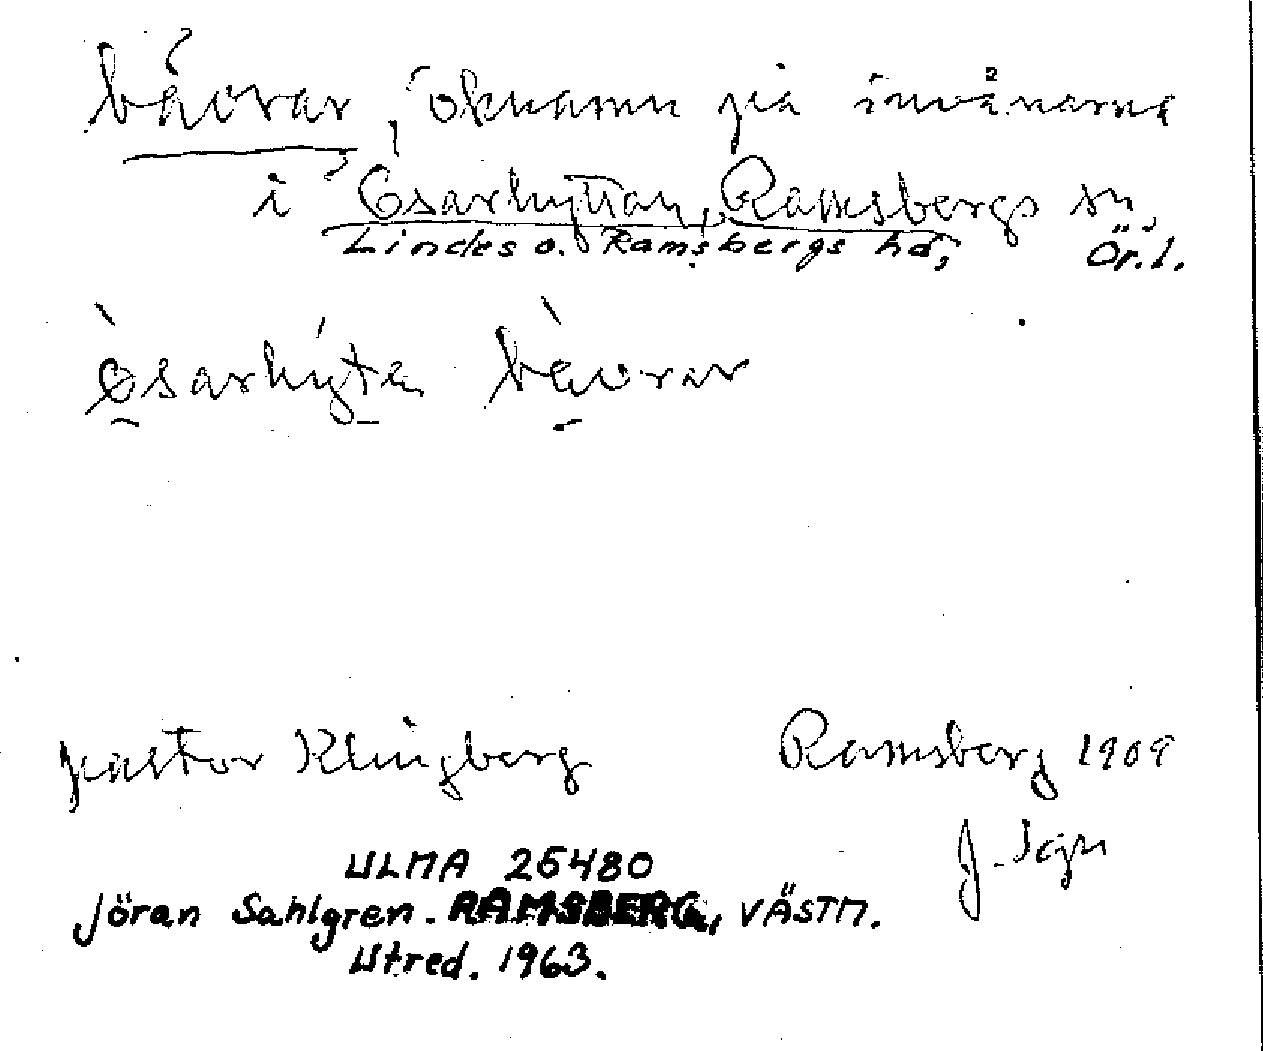 bävrar, öknamn på invånarna
i Ösarhyttan, Ramsbergs sn,
Lindes o. Ramsbergs hd, Ör.l.
ösarhýta bävrar
pastor Klingberg Ramsberg 1909
J. Sgn
ULMA 26480
Jöran Sahlgren. RAMSBERG, VÄSTM.
Utred. 1963.